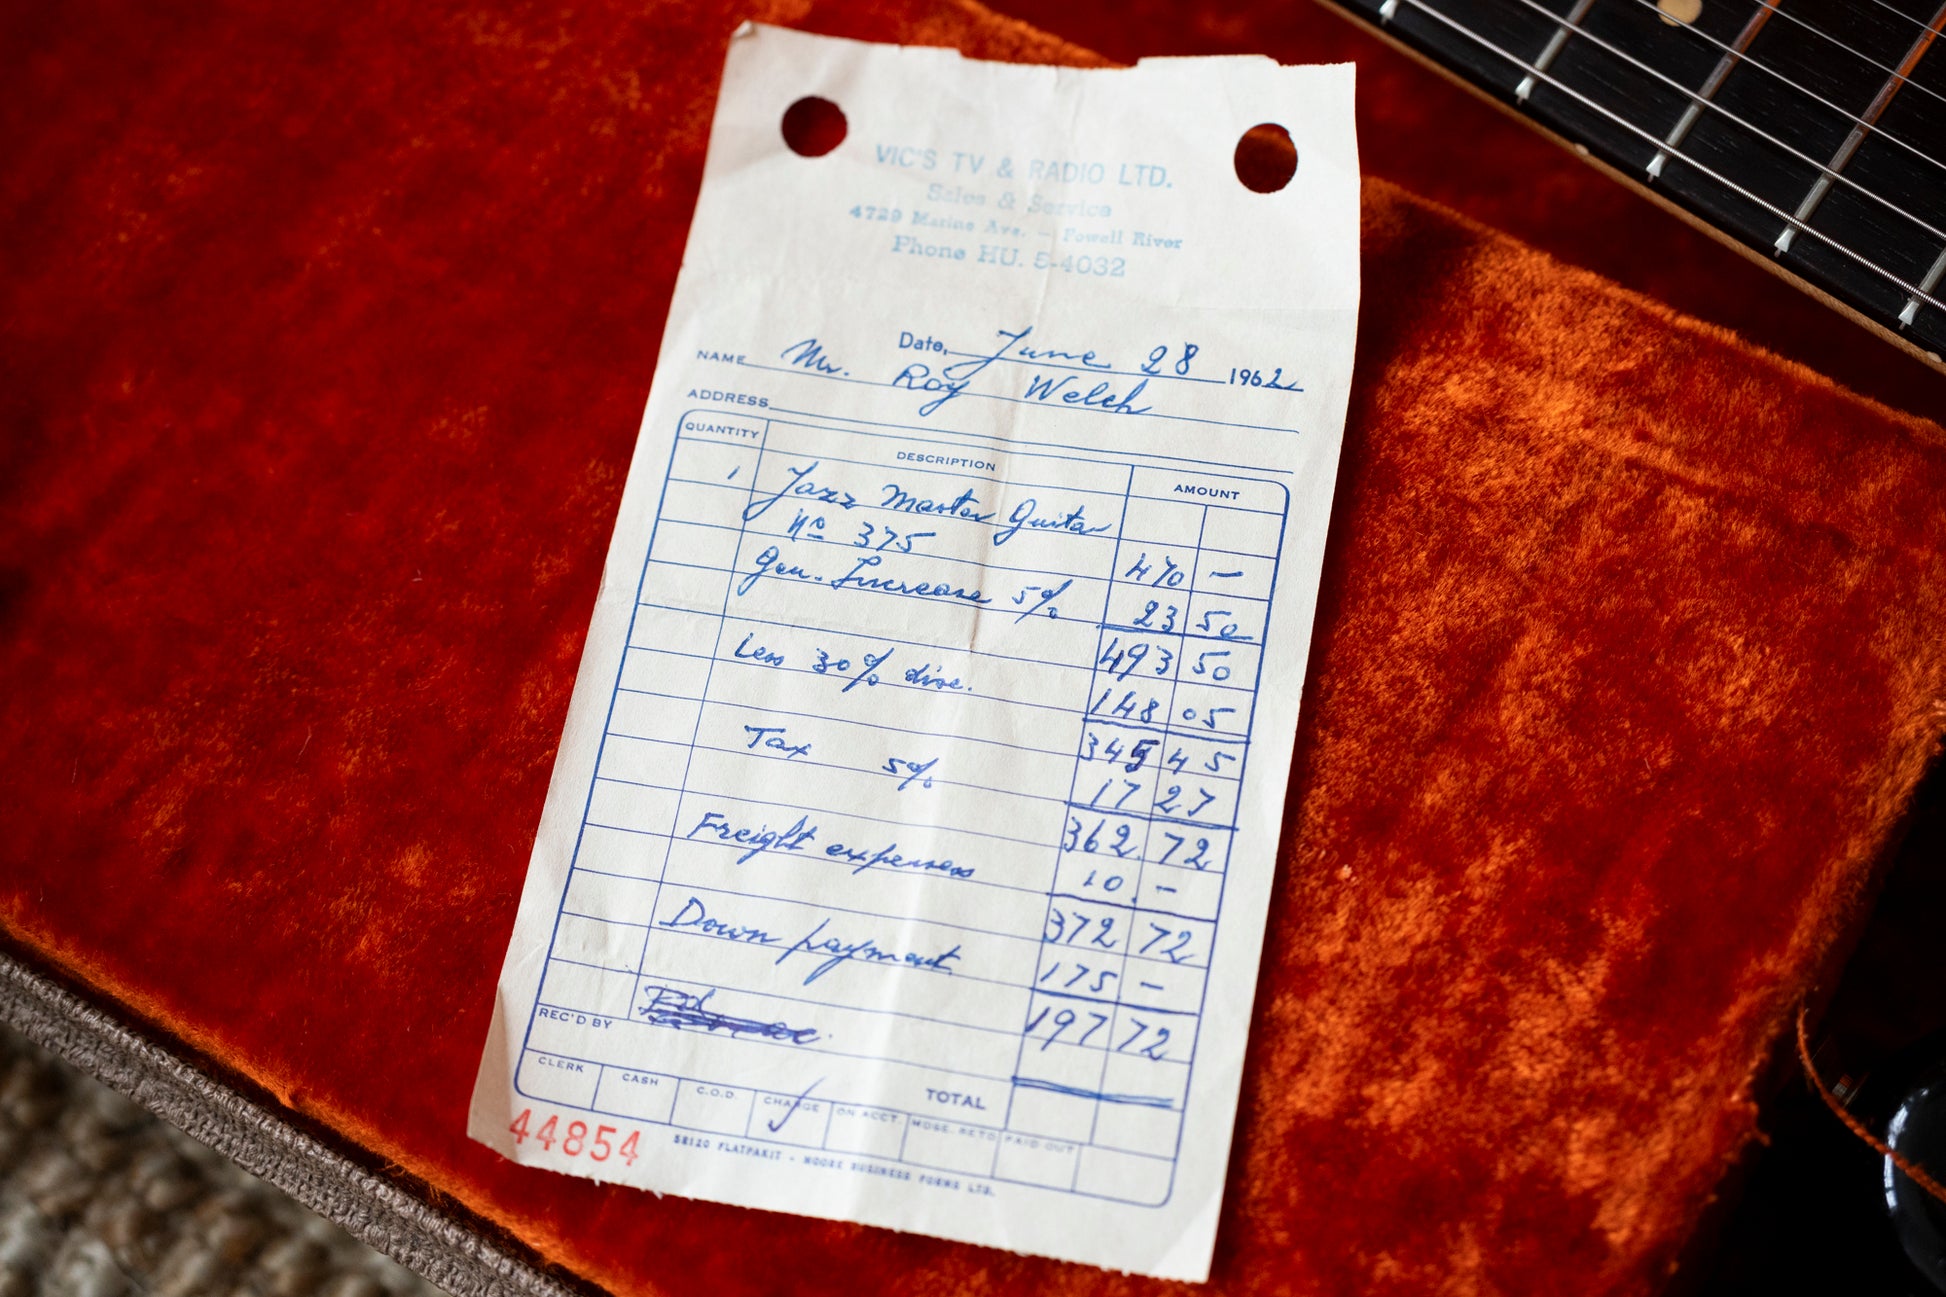 VIC'S TV & RADIO LTD.
Sales & Service
4729 Marine Ave. — Powell River
Phone HU. 5-4032
Date, June 28 1962
NAME Mr. Roy Welch
ADDRESS
QUANTITY DESCRIPTION AMOUNT
1 Jazz Master Guitar
No 375 470 —
Gen. Increase 5% 23 50
493 50
Less 30% disc. 148 05
345 45
Tax 5% 17 27
362 72
Freight expenses 10 —
372 72
Down payment 175 —
197 72
REC'D BY
TOTAL
CLERK CASH C.O.D. CHARGE ON ACCT. MDSE. RETD PAID OUT
44854 SB120 FLATPAKIT - MOORE BUSINESS FORMS LTD.